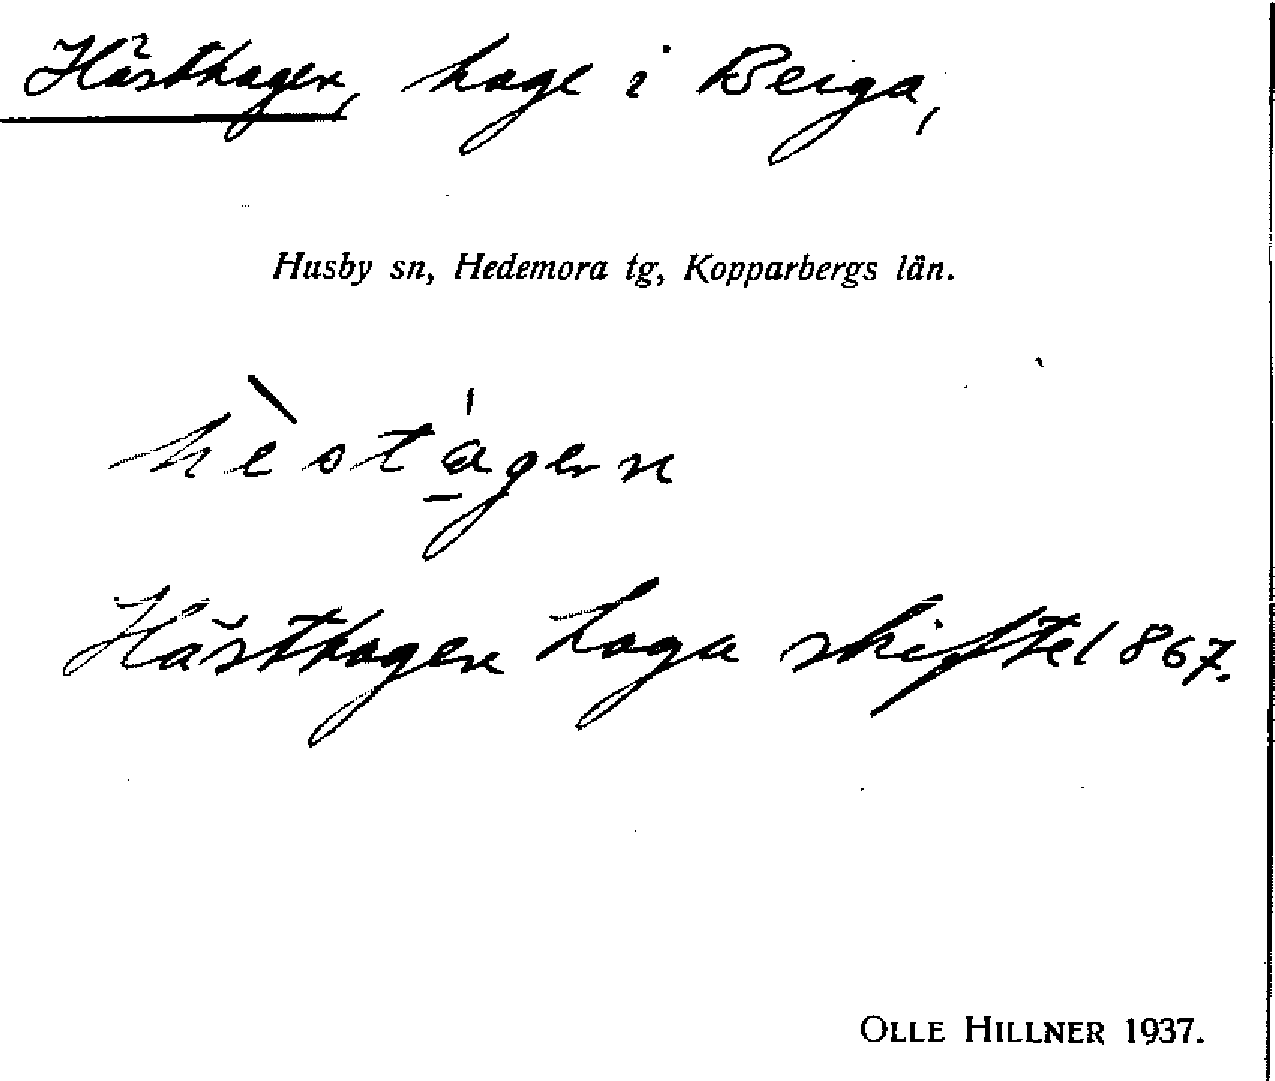 Hästhagen, hage i Berga,
Husby sn, Hedemora tg, Kopparbergs län.
hèstágen
Hästhagen haga skiftet 1867.
OLLE HILLNER 1937.